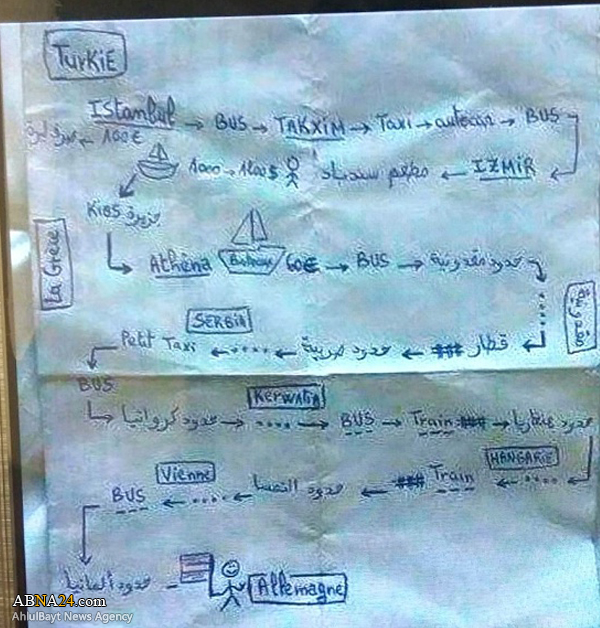 TURKIE
Istanbul → BUS → TAKXIM → Taxi → autocar → BUS
100€ →
IZMIR ← مطعم سندباد 1000 → 1200$
Kios جزيرة
La Grece
Athèna 60€ → BUS → حدود مقدونية
مقدونية
SERBIA
قطار ### ← حدود صربية ← .... ← Petit Taxi
BUS
KERWATIA
حدود كرواتيا → .... → BUS → Train ### → حدود هنغاريا
HANGARIE
Vienne
.... ← Train ### ← حدود النمسا ← .... ← BUS
حدود ألمانيا
Allemagne
ABNA24.com
AhlulBayt News Agency